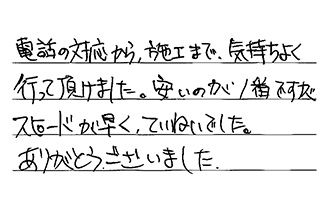 電話の対応から、施工まで、気持ちよく
行って頂けました。安いのが1番ですが
スピードが早く、ていねいでした。
ありがとうございました。